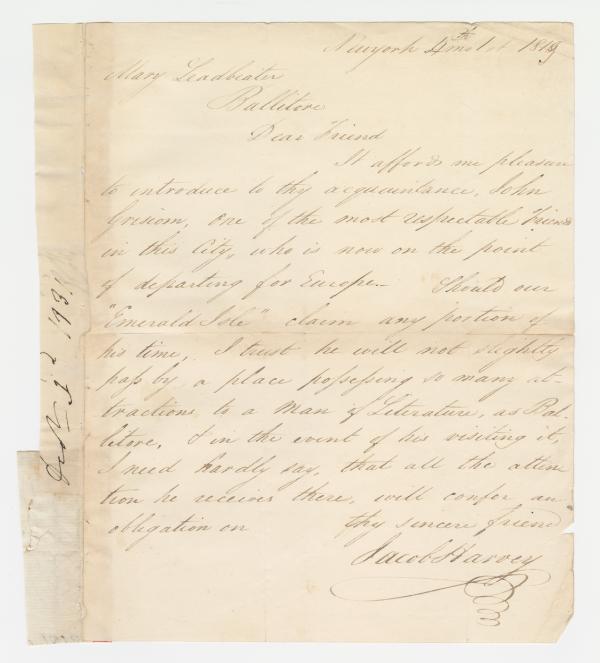 Newyork 4th mo 1st 1819
Mary Leadbeater
Ballitore
Dear Friend
It affords me pleasure
to introduce to thy acquaintance, John
Griscom, one of the most respectable Friends
in this City, who is now on the point
of departing for Europe— Should our
"Emerald Isle" claim any portion of
his time, I trust he will not slightly
paſs by, a place poſseſsing so many at-
tractions to a Man of Literature, as Bal-
litore, & in the event of his visiting it,
I need hardly say, that all the atten
tion he receives there, will confer an
obligation on thy sincere friend
Jacob Harvey